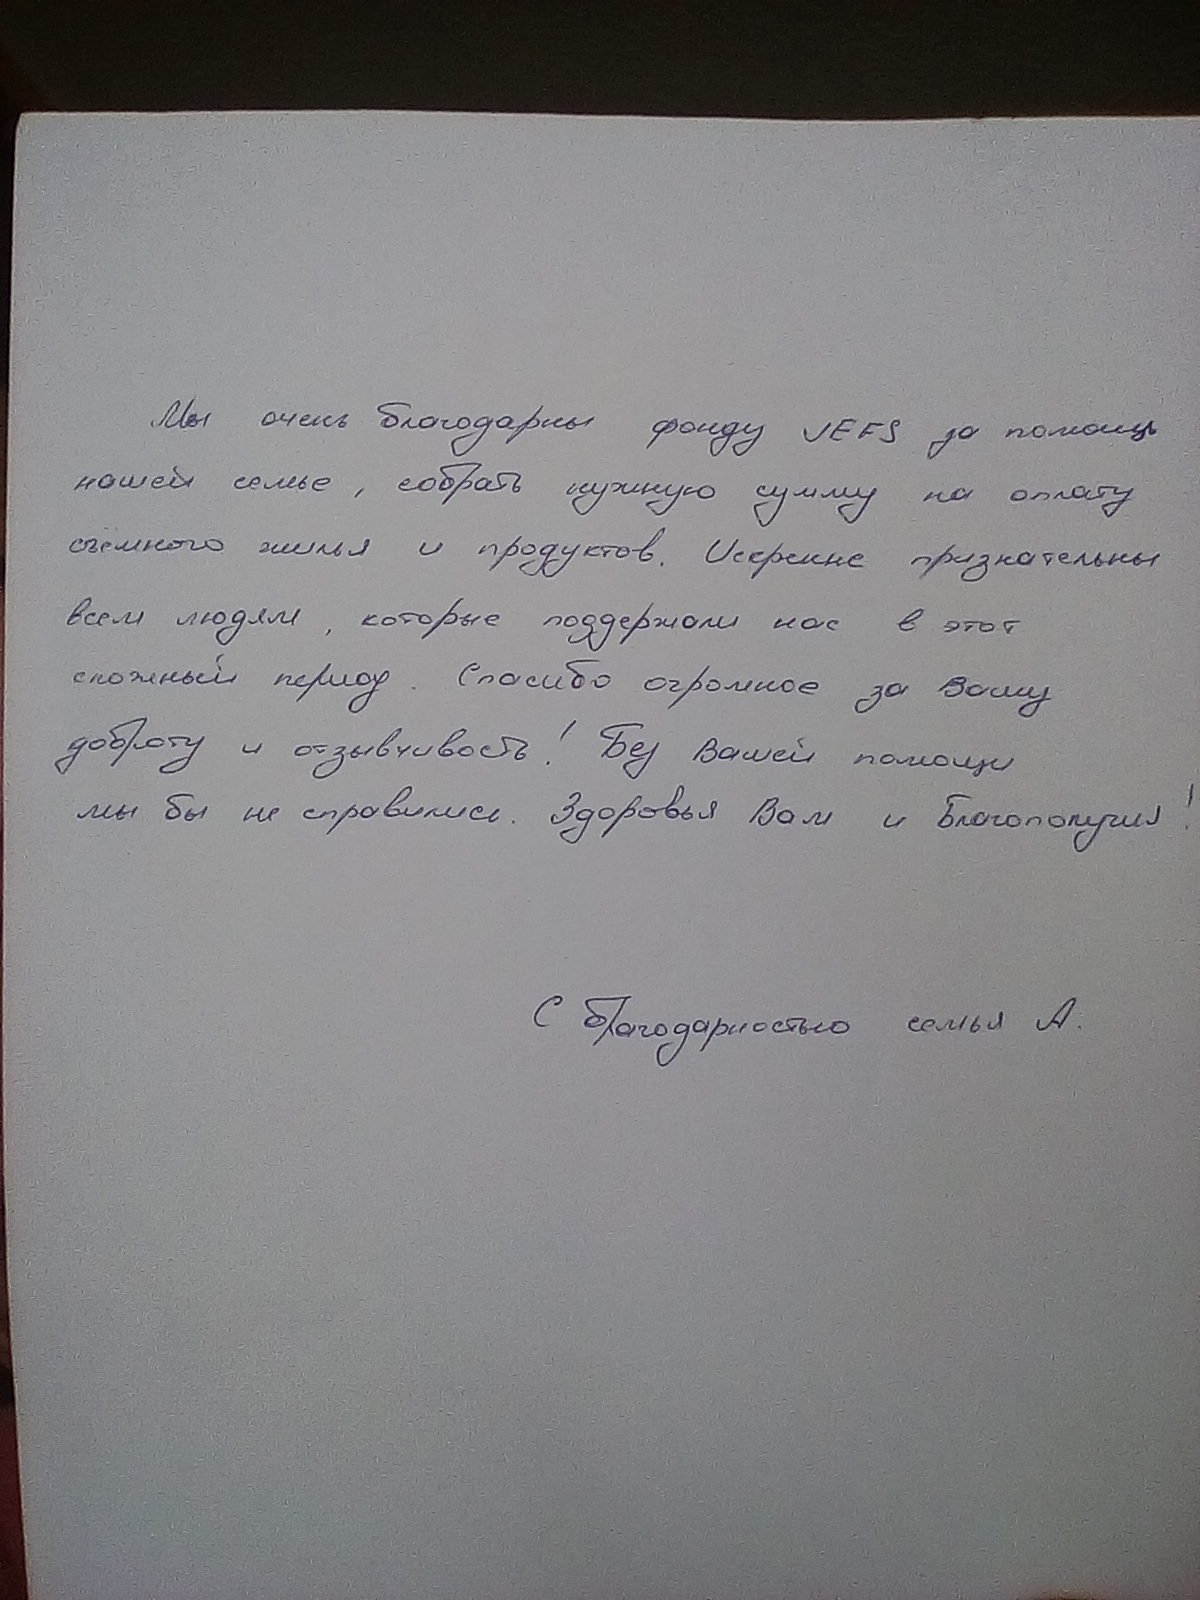 Мы очень благодарны фонду JEFS за помощь
нашей семье, собрать нужную сумму на оплату
съёмного жилья и продуктов. Искренне признательны
всем людям, которые поддержали нас в этот
сложный период. Спасибо огромное за Вашу
доброту и отзывчивость! Без Вашей помощи
мы бы не справились. Здоровья Вам и Благополучия!
С благодарностью семья А.